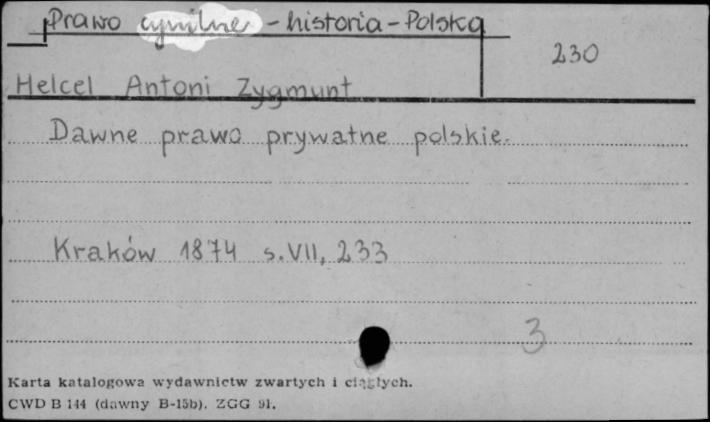 Prawo cywilne - historia - Polska
230
Helcel Antoni Zygmunt
Dawne prawo prywatne polskie.
Kraków 1874 s. VII, 233
3
Karta katalogowa wydawnictw zwartych i ciągłych.
CWD B 144 (dawny B-15b). ZGG 91.